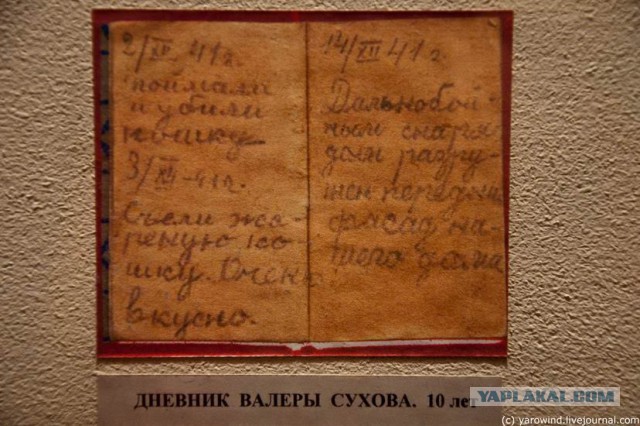 2/XII. 41 г.
поймали
и убили
кошку
3/XII-41г.
Съели жа-
реную ко-
шку. Очень
вкусно.
14/XII 41 г.
Дальнобой-
ным снаря-
дом разру-
шен передний
фасад на-
шего дома
ДНЕВНИК ВАЛЕРЫ СУХОВА. 10 лет
YAPLAKAL.COM
(c) yarowind.livejournal.com